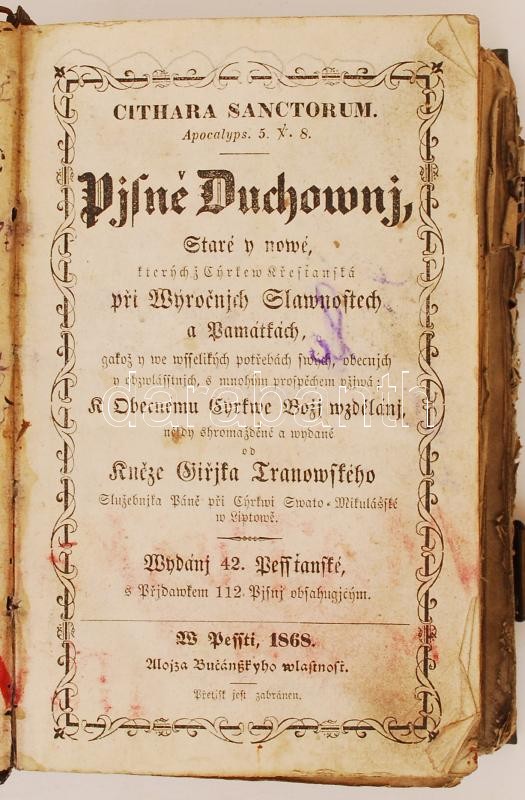 CITHARA SANCTORUM.
Apocalyps. 5. X. 8.
Pjſně Duchownj,
Staré y nowé,
kterých ž Cýrkew Křeſťanſká
při Weyročnjch Slawnoſtech
a Památkách,
gakož y we wſſelikých potřebách ſwých, obecných
y obzwláſſtnjch, s mnohým proſpěchem vžjwá:
K Obecnému Cýrkwe Božj wzdělánj,
někdy shromážděné a wydané
od
Kněze Giřjka Tranowſkého
Služebnjka Páně při Cýrkwi Swato-Mikuláſſké
w Liptowě.
Wydánj 42. Peſſťanſké,
s Přjdawkem 112 Pjſnj obſahugjcým.
W Peſſti, 1868.
Alojza Bučánſkyho wlaſtnoſť.
Přetiſk jeſt zabránen.
darabanth